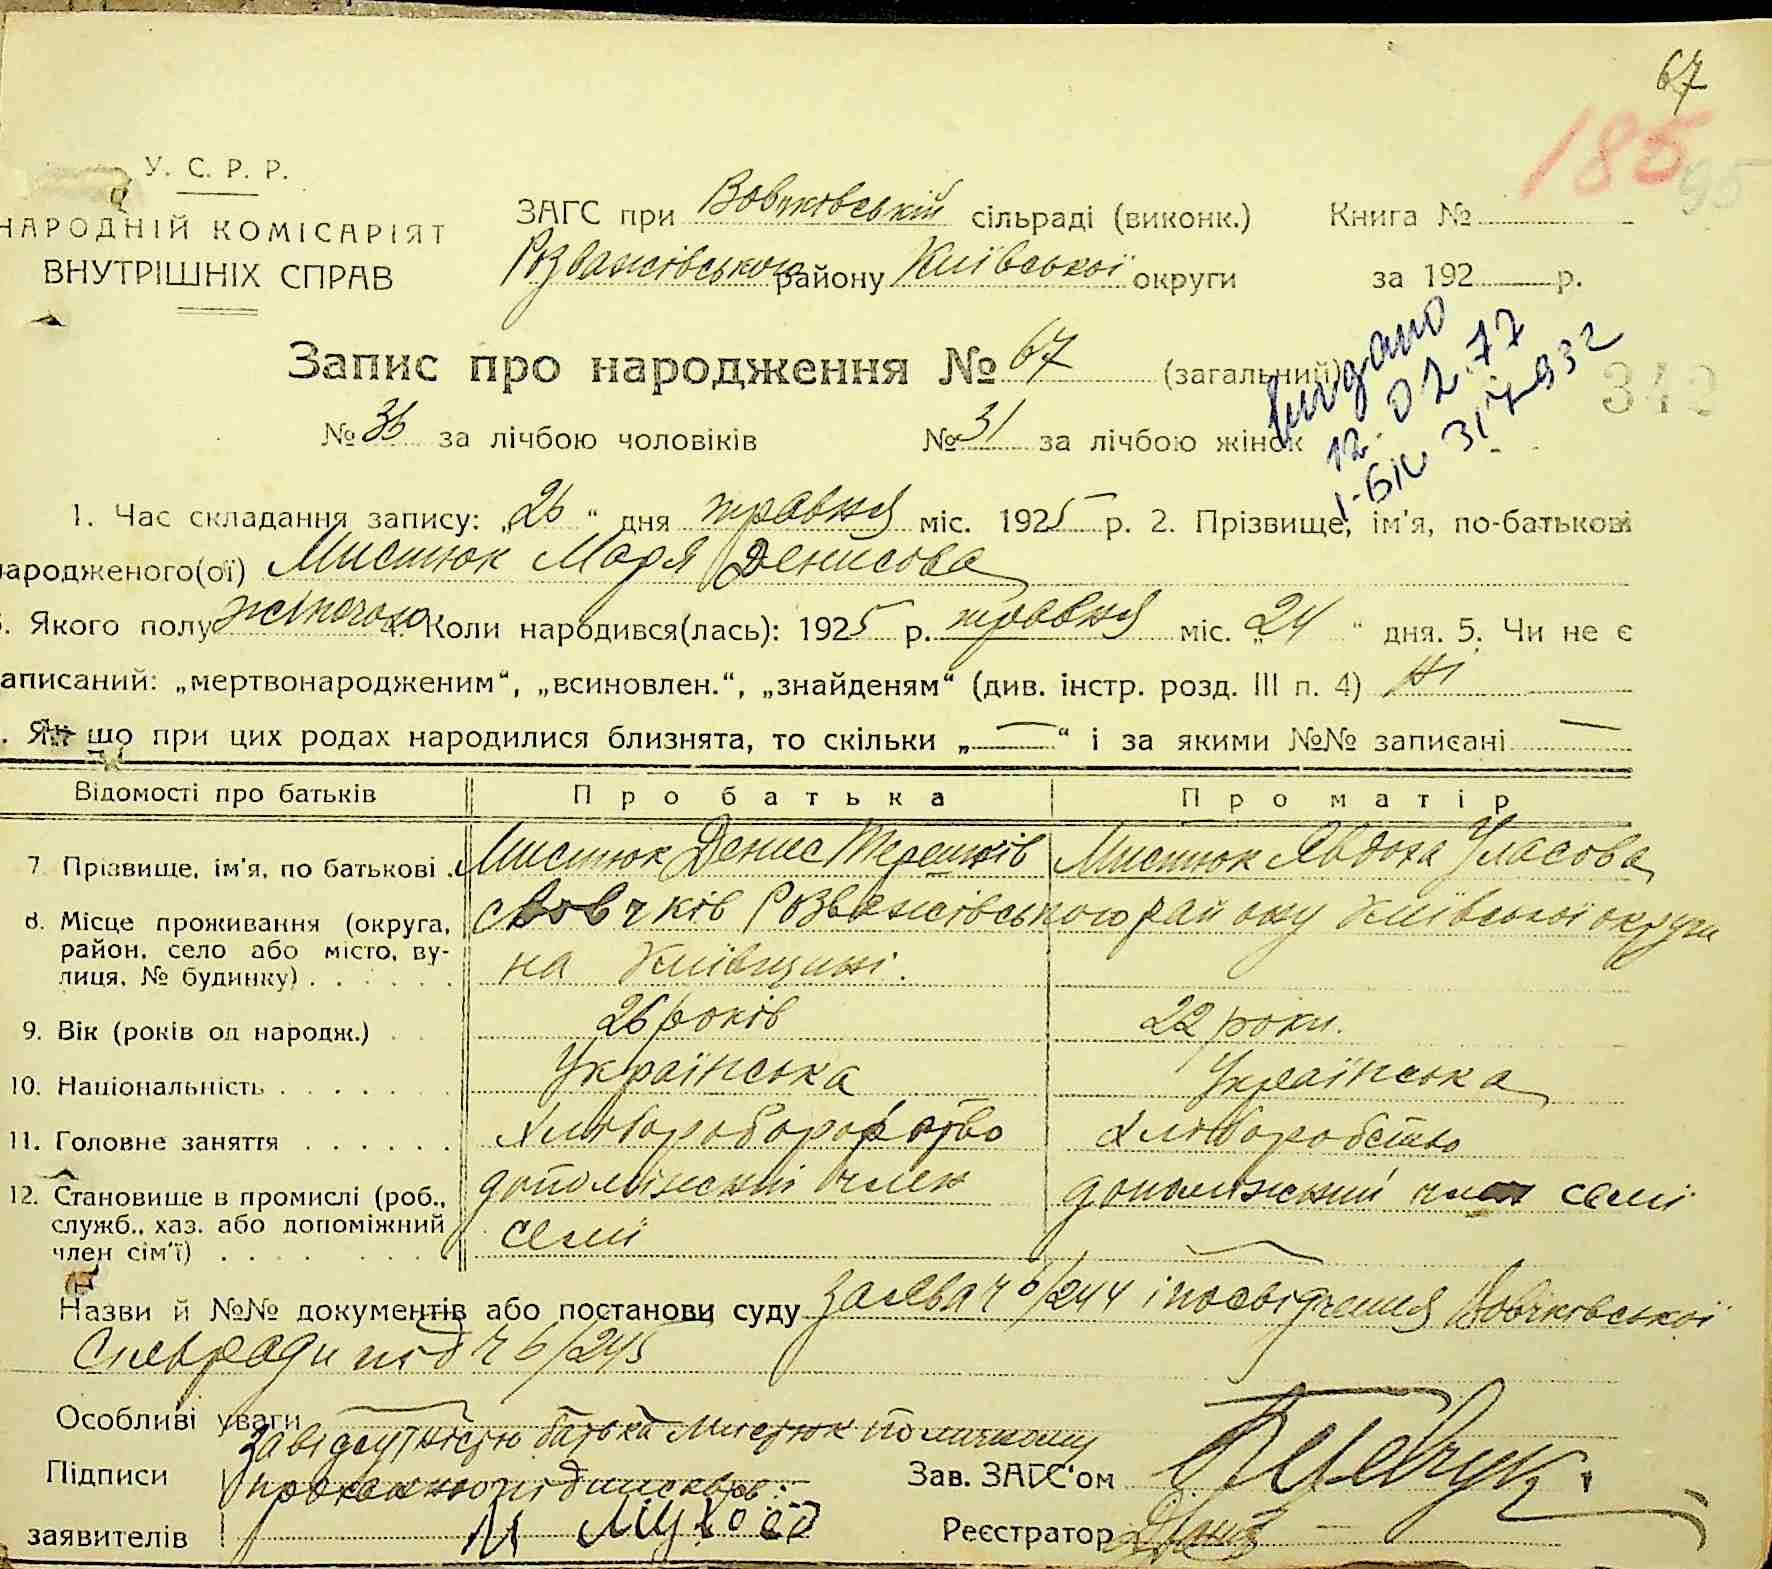 67
185
95
У. С. Р. Р.
НАРОДНІЙ КОМІСАРІЯТ
ВНУТРІШНІХ СПРАВ
ЗАГС при Вовчківській сільраді (виконк.) Книга №
Розважівського району Київської округи за 192 р.
Запис про народження № 67 (загальний)
342
№ 36 за лічбою чоловіків № 31 за лічбою жінок
видано
12.02.77
І-БК 317932
1. Час складання запису: „26“ дня травня міс. 1925 р. 2. Прізвище, ім'я, по-батькові
народженого(ої) Мистюк Марія Денисова
3. Якого полу жіночого 4. Коли народився(лась): 1925 р. травня міс. „24“ дня. 5. Чи не є
записаний: „мертвонародженим“, „всиновлен.“, „знайденям“ (див. інстр. розд. III п. 4) Ні
. Як що при цих родах народилися близнята, то скільки „—“ і за якими №№ записані —
Відомості про батьків Про батька Про матір
7. Прізвище, ім'я, по батькові Мистюк Денис Терешків Мистюк Явдоха Уласова
8. Місце проживання (округа, район, село або місто, вулиця, № будинку) с Вовчків Розважівського району Київської округи
на Київщині.
9. Вік (років од народж.) 26 років 22 роки.
10. Національність Українська Українська
11. Головне заняття Хліборобство
12. Становище в промислі (роб., служб., хаз. або допоміжний член сім'ї) допоміжний член семї допоміжний член семї
Назви й №№ документів або постанови суду заява ч 6/244 і посвідчення Вовчківської
Сильради під ч 6/245
Особливі уваги
За відсутністю батька Мистюк по
Підписи
заявителів
Зав. ЗАГС'ом
Реєстратор